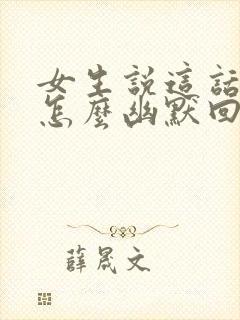 女生說這話
怎麼幽默回
薛晟文